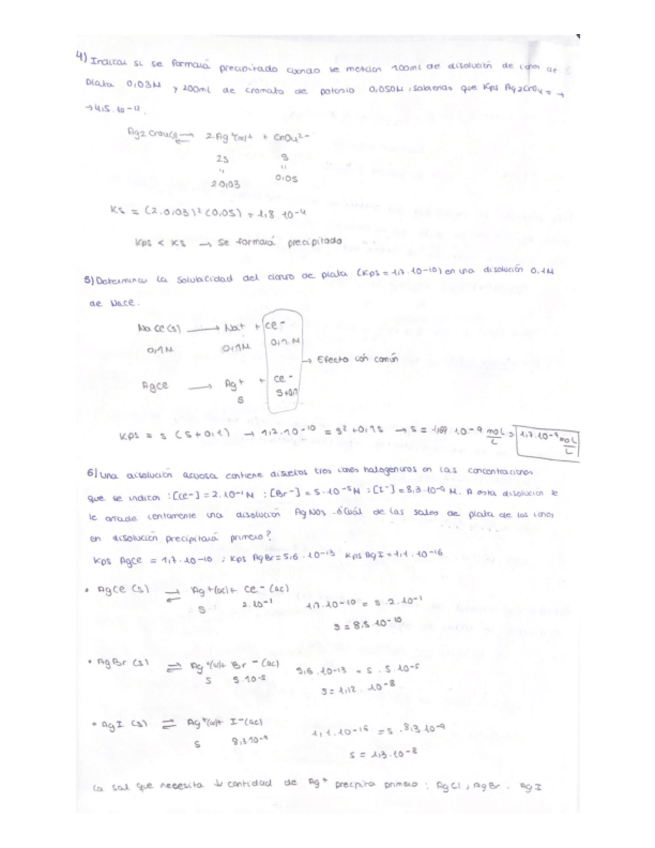 4) Indicar si se formará precipitado cuando se mezclan 100ml de disolución de iones de
plata 0,03M y 200ml de cromato de potasio 0,050M, sabiendo que Kps Ag2CrO4 = →
→ 4,5.10-12.
Ag2CrO4(s) ⇌ 2Ag+(ac)+ + CrO4 2-
2s s
" "
2 0,03 0,05
Ks = (2.0,03)² (0,05) = 1,8 10-4
Kps < Ks → Se formará precipitado
5) Determinar la solubilidad del cloruro de plata (Kps = 1,7.10-10) en una disolución 0,1M
de NaCl.
NaCl(s) → Na+ + Cl-
0,1M 0,1M 0,1M
→ Efecto ión común
AgCl → Ag+ + Cl-
s s+0,1
Kps = s (s+0,1) → 1,7.10-10 = s² + 0,1s → s = 1,69.10-9 mol/L ≈ 1,7.10-9 mol/L
6) Una disolución acuosa contiene disueltos tres iones halogenuros en las concentraciones
que se indican: [Cl-] = 2.10-1 M ; [Br-] = 5.10-5 M ; [I-] = 8,3.10-9 M. A esta disolución se
le añade lentamente una disolución AgNO3. ¿Cuál de las sales de plata de los iones
en disolución precipitará primero?
Kps AgCl = 1,7.10-10 ; Kps AgBr = 5,6.10-13 Kps AgI = 1,1.10-16
• AgCl (s) ⇌ Ag+(ac) + Cl- (ac)
s 2.10-1 1,7.10-10 = s.2.10-1
s = 8,5.10-10
• AgBr (s) ⇌ Ag+(ac) + Br- (ac) 5,6.10-13 = s.5.10-5
s 5.10-5 s = 1,12.10-8
• AgI (s) ⇌ Ag+(ac) + I- (ac) 1,1.10-16 = s.8,3.10-9
s 8,3.10-9 s = 1,3.10-8
La sal que necesita ↓ cantidad de Ag+ precipita primero: AgCl, AgBr, AgI